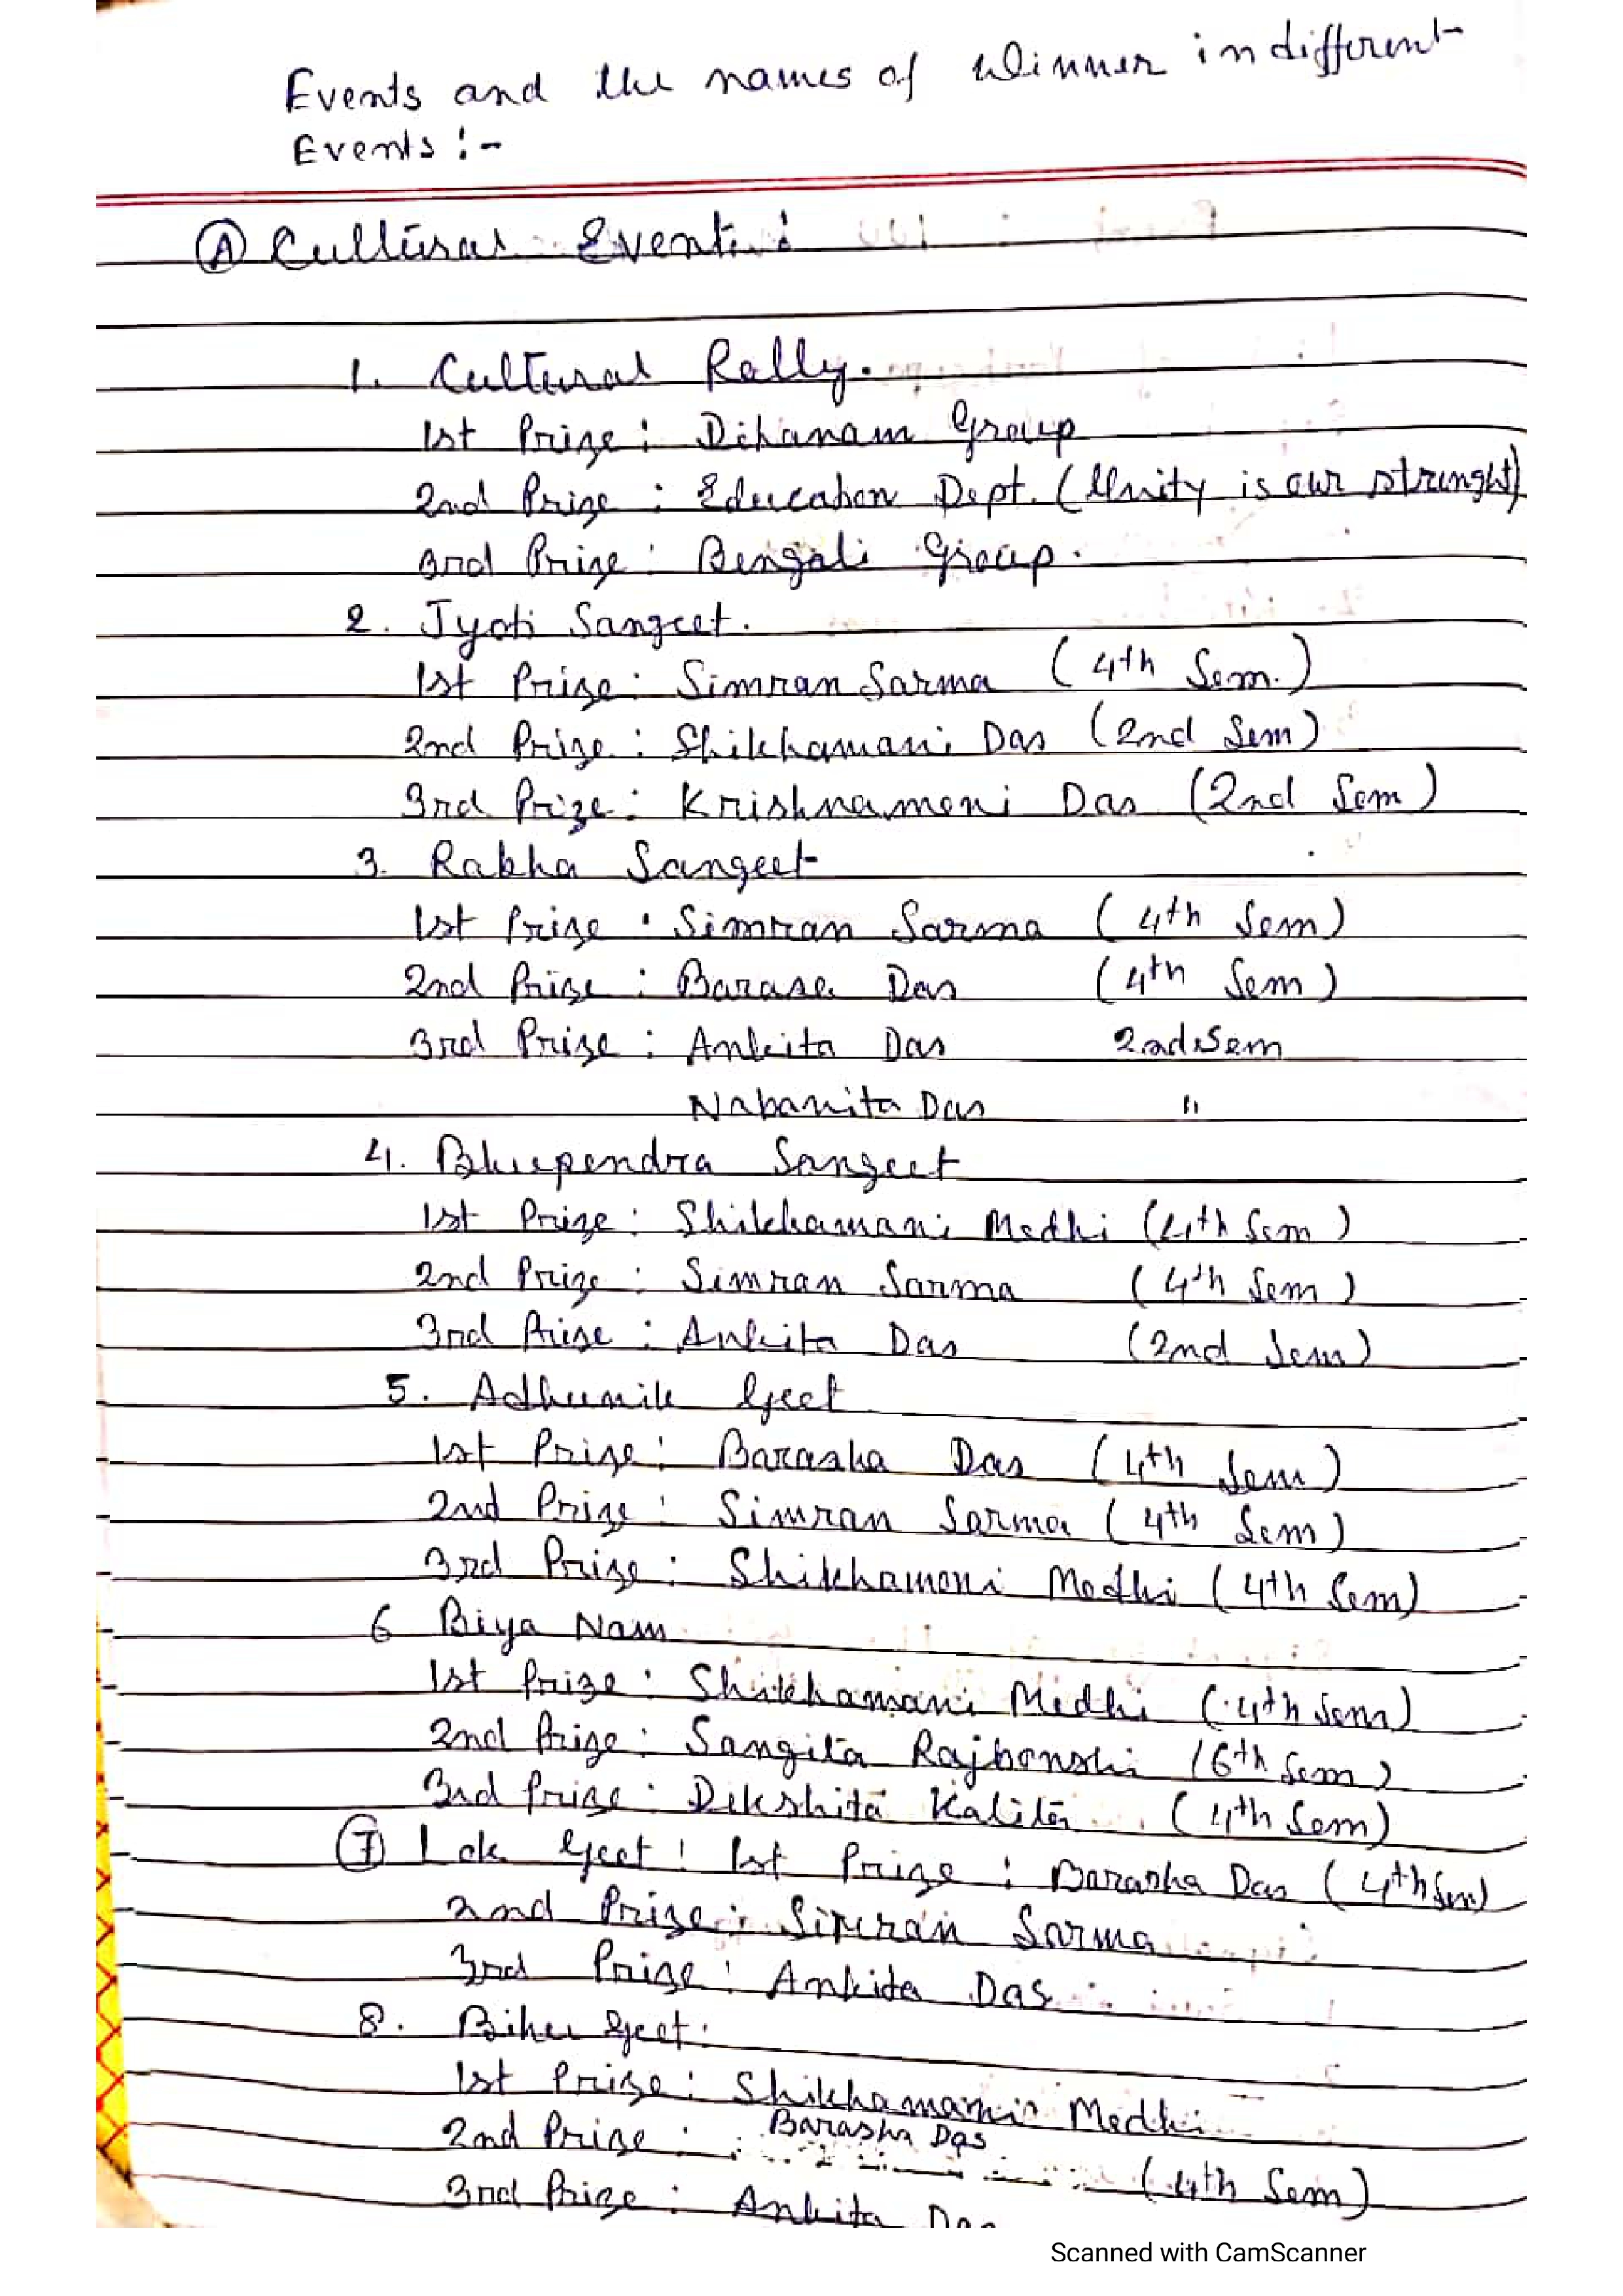 Events and the names of Winner in different
Events :-
(A) Cultural Events :
1. Cultural Rally.
1st Prize : Dihanam Group
2nd Prize : Education Dept. (Unity is our strenght)
3rd Prize : Bengali Group.
2. Jyoti Sangeet.
1st Prize : Simran Sarma (4th Sem.)
2nd Prize : Shikhamani Das (2nd Sem)
3rd Prize : Krishnamoni Das (2nd Sem)
3. Rabha Sangeet
1st Prize : Simran Sarma (4th Sem)
2nd Prize : Barasa Das (4th Sem)
3rd Prize : Ankita Das 2nd Sem
Nabanita Das "
4. Bhupendra Sangeet
1st Prize : Shikhamani Medhi (4th Sem)
2nd Prize : Simran Sarma (4th Sem)
3rd Prize : Ankita Das (2nd Sem)
5. Adhunik Geet
1st Prize : Barasha Das (4th Sem)
2nd Prize : Simran Sarma (4th Sem)
3rd Prize : Shikhamoni Medhi (4th Sem)
6 Biya Nam
1st Prize : Shikhamani Medhi (4th Sem)
2nd Prize : Sangita Rajbonshi (6th Sem)
3rd Prize : Dikshita Kalita (4th Sem)
(7) Lok Geet : 1st Prize : Barasha Das (4th Sem)
2nd Prize : Simran Sarma
3rd Prize : Ankita Das
8. Bihu Geet.
1st Prize : Shikhamani Medhi
2nd Prize : Barasha Das (4th Sem)
3rd Prize : Ankita Das
Scanned with CamScanner